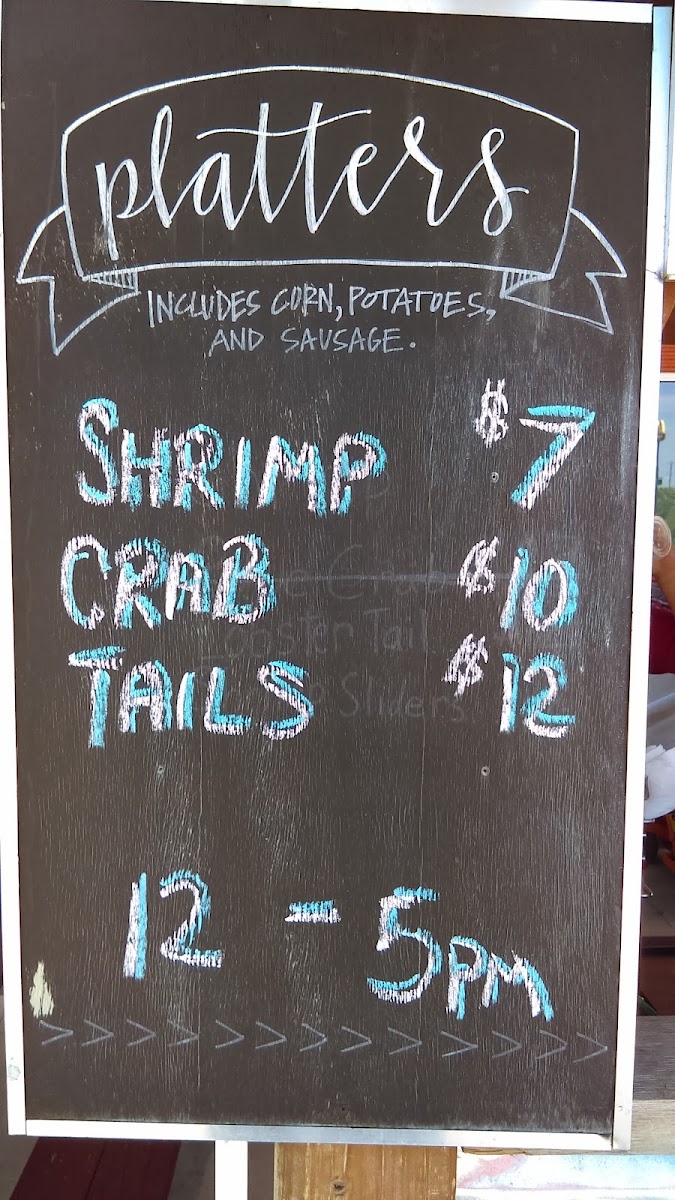 platters
INCLUDES CORN, POTATOES,
AND SAUSAGE.
SHRIMP $7
CRAB $10
TAILS $12
12 - 5PM
> > > > > > > > > > > > > >